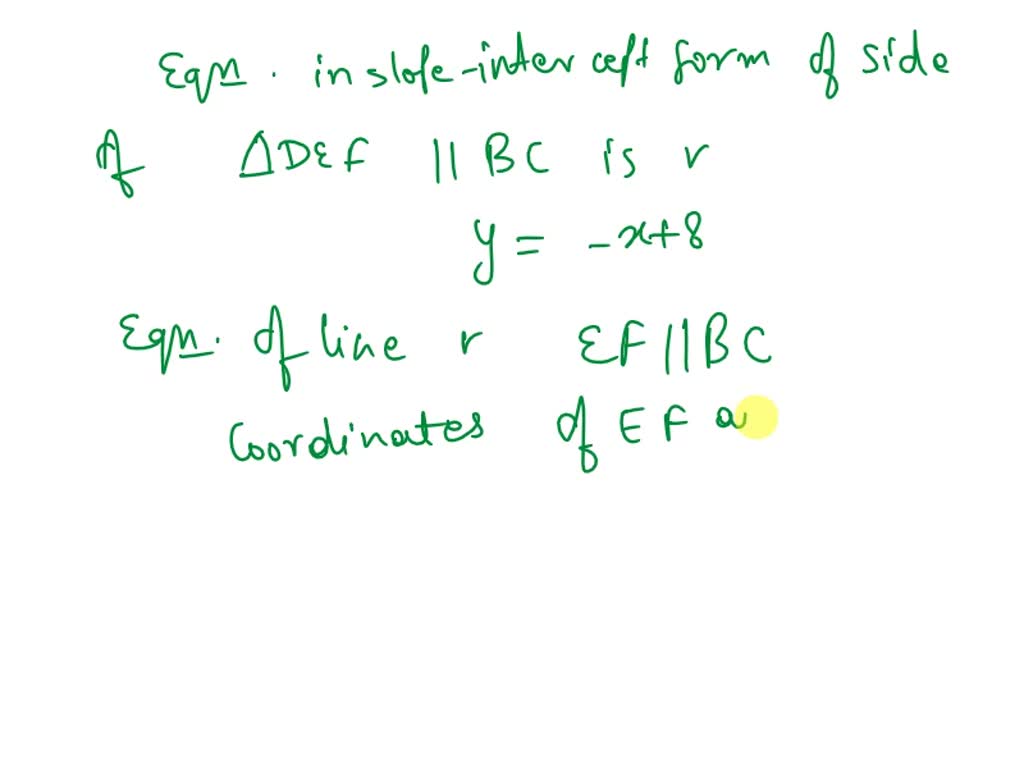 Eqn. in slope-intercept form of side
of ΔDEF || BC is r
y = -x+8
Eqn. of line r EF||BC
Coordinates of EF a